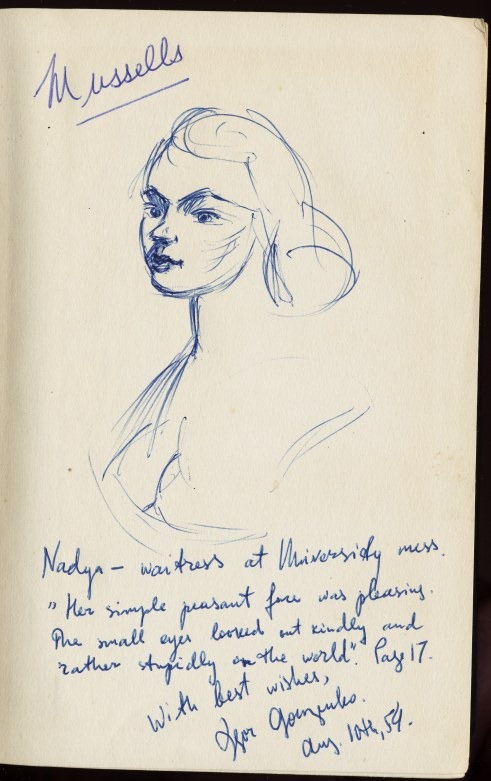 Mussells
Nadya – waitress at University mess.
"Her simple peasant face was pleasing.
The small eyes looked out kindly and
rather stupidly on the world". Page 17.
With best wishes,
Igor Gouzenko.
Aug. 10th, 54.